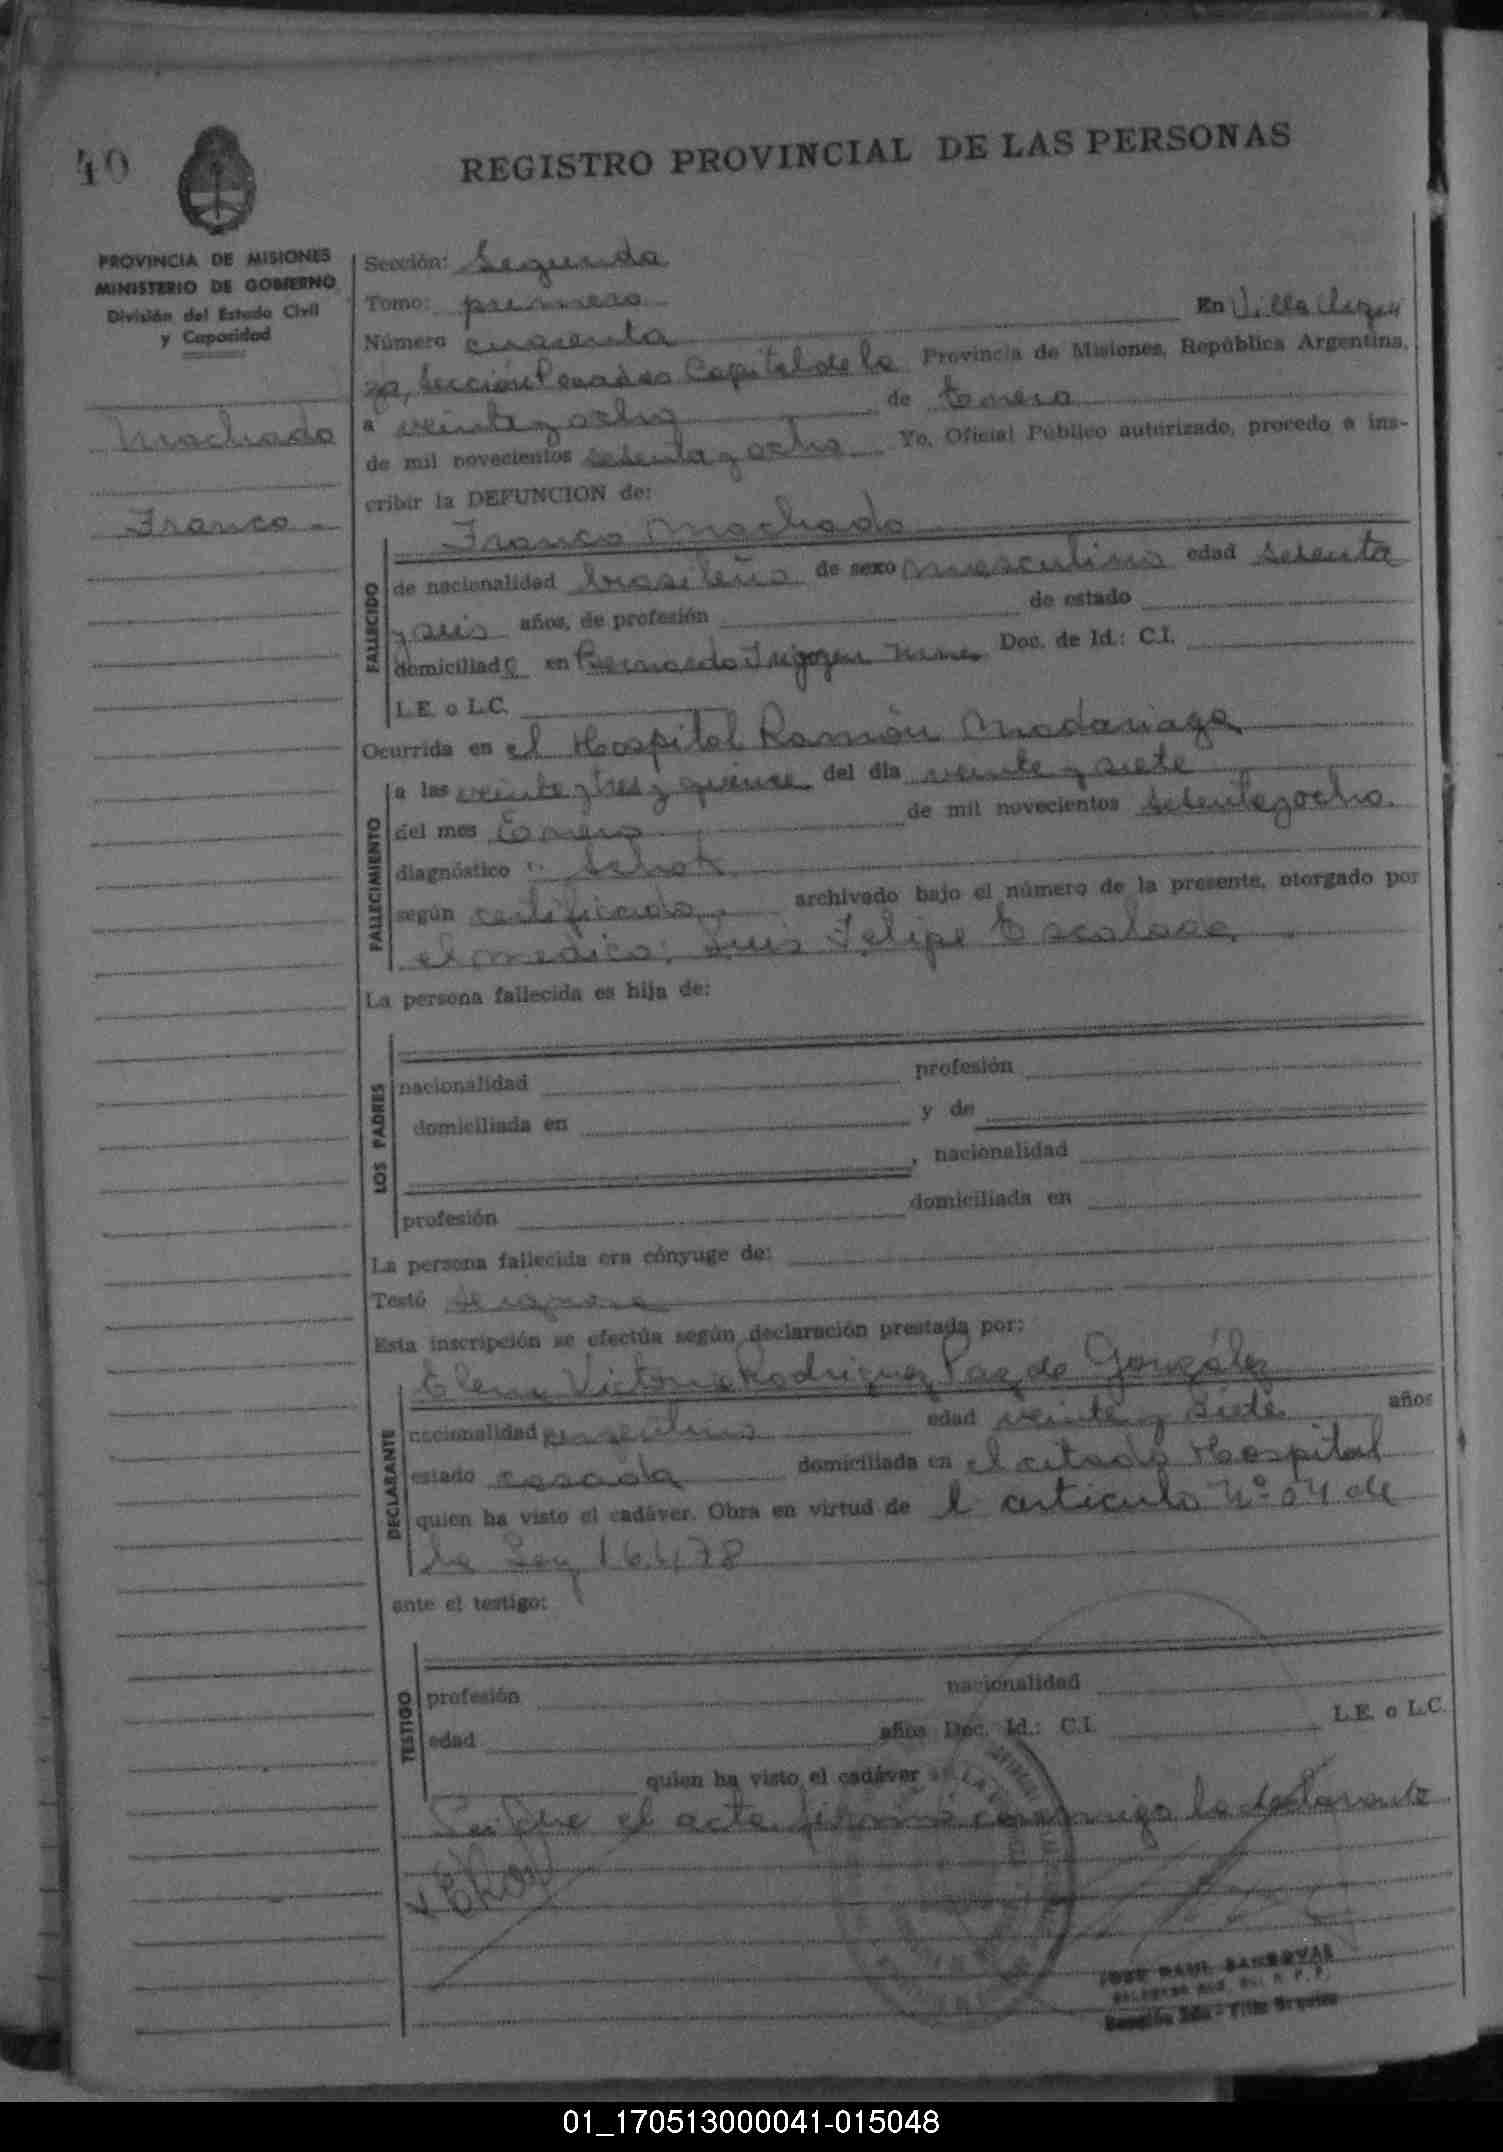 40
REGISTRO PROVINCIAL DE LAS PERSONAS
PROVINCIA DE MISIONES
MINISTERIO DE GOBIERNO
División del Estado Civil
y Capacidad
Machado
Franco
Sección: Segunda
Tomo: primero
En Villa Urqui
Número cuarenta
za, Sección Posadas Capital de la Provincia de Misiones, República Argentina,
a veinte y ocho de Enero
de mil novecientos setenta y ocho Yo, Oficial Público autorizado, procedo a ins-
cribir la DEFUNCION de:
Franco Machado
FALLECIDO
de nacionalidad brasileña de sexo masculino edad setenta
y seis años, de profesión de estado
domiciliado en Bernardo Irigoyen Mnes Doc. de Id.: C.I.
L.E. o L.C.
Ocurrida en el Hospital Ramón Madariaga
FALLECIMIENTO
a las veinte y tres y quince del dia veinte y siete
del mes Enero de mil novecientos setenta y ocho
diagnóstico Schok
según certificado archivado bajo el número de la presente, otorgado por
el medico: Luis Felipe Escalada
La persona fallecida es hija de:
LOS PADRES
nacionalidad profesión
domiciliada en y de
, nacionalidad
profesión domiciliada en
La persona fallecida era cónyuge de:
Testó se ignora
Esta inscripción se efectúa según declaración prestada por:
Elena Victoria Rodriguez Paz de González
DECLARANTE
nacionalidad edad veinte y siete años
estado casada domiciliada en el citado Hospital
quien ha visto el cadáver. Obra en virtud de l articulo Nº 04 de
la Ley 16.478
ante el testigo:
TESTIGO
profesión nacionalidad
edad años Doc. Id.: C.I. L.E. o L.C.
quien ha visto el cadáver
el acta firmó conmigo la declarante
JOSE RAUL SANDOVAL
Sección 2da - Villa Urquiza
01_170513000041-015048